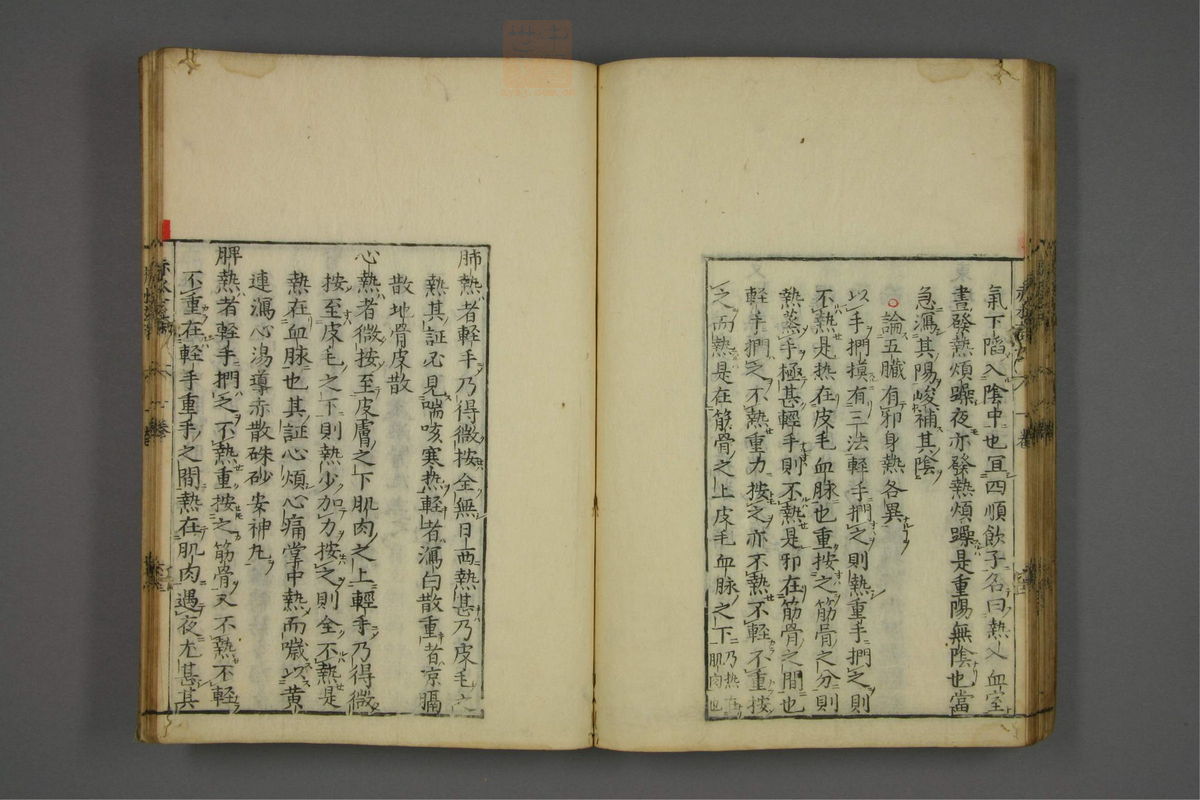 氣下陷入陰中也冝四順飲子名曰熱入血室
晝發熱煩躁夜亦發熱煩躁是重陽無陰也當
急瀉其陽峻補其陰
○論五臟有邪身熱各異
以手捫摸有三法輕手捫之則熱重手捫之則
不熱是热在皮毛血脉也重按之筋骨之分則
熱蒸手極甚輕手則不熱是邪在筋骨之間也
輕手捫之不熱重力按之亦不熱不輕不重按
之而熱是在筋骨之上皮毛血脉之下乃热在肌肉也
肺熱者輕手乃得微按全無日西熱甚乃皮毛之
熱其証必見喘咳寒热輕者瀉白散重者凉膈
散地骨皮散
心熱者微按至皮膚之下肌肉之上輕手乃得微
按至皮毛之下則熱少加力按之則全不熱是
熱在血脉也其証心煩心痛掌中熱而噦以黄
連瀉心湯導赤散硃砂安神丸
脾熱者輕手捫之不熱重按之筋骨又不熱不輕
不重在輕手重手之間熱在肌肉遇夜尤甚其